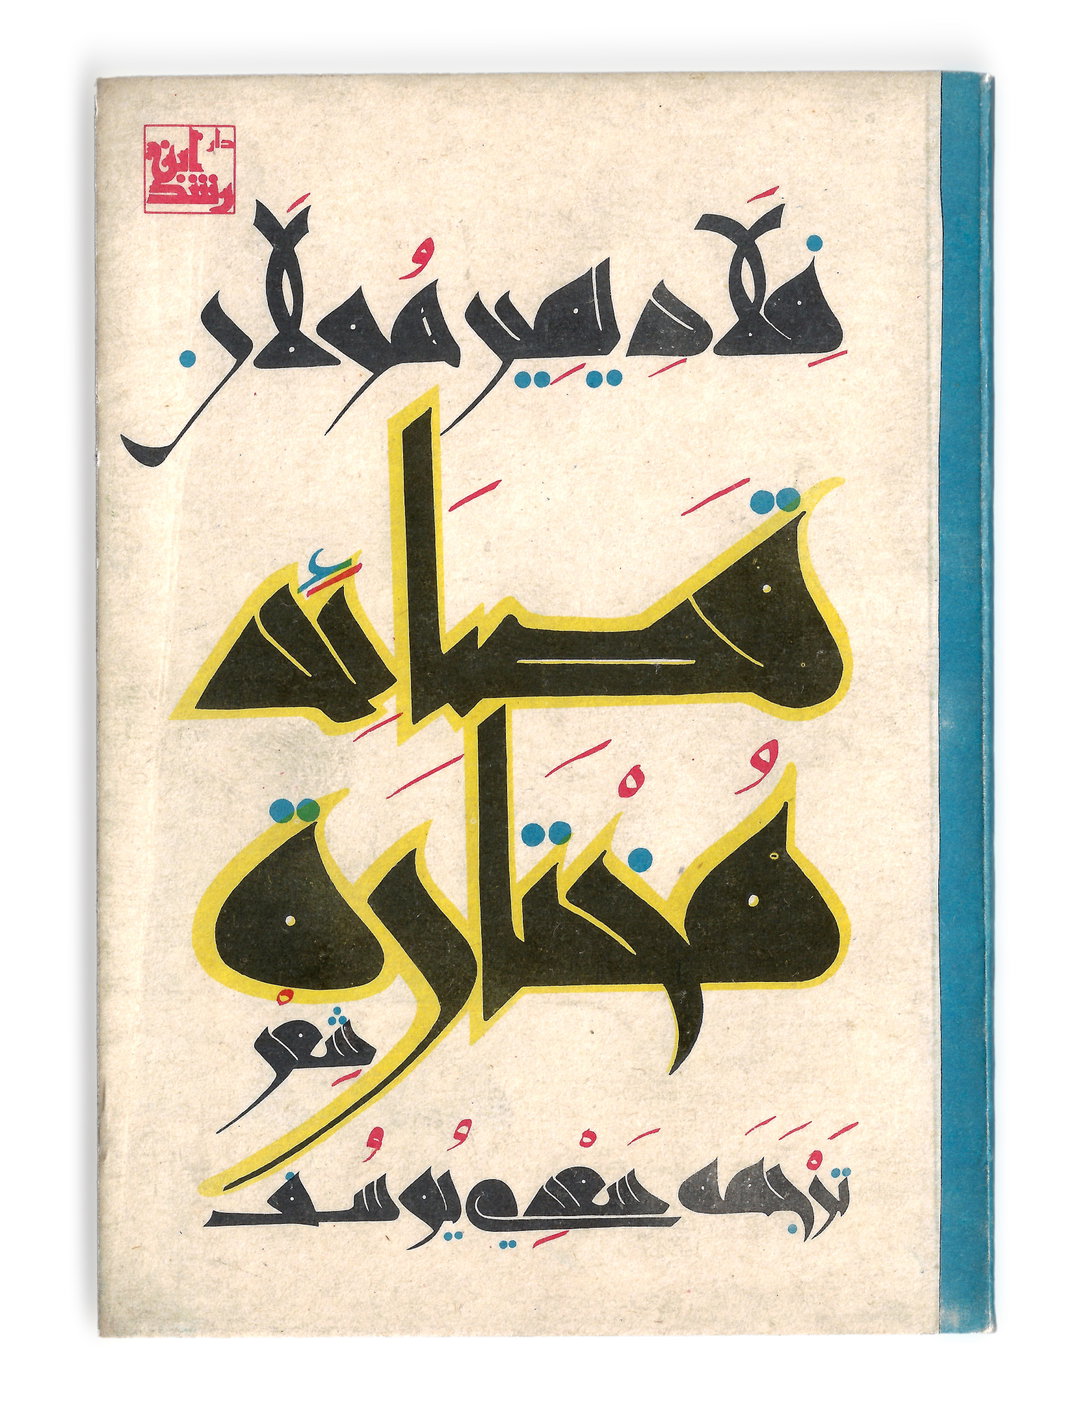 دار ابن رشد
فِلَادِيمِير هُولَان
قَصَائِد
مُخْتَارَة
شِعْر
تَرْجَمَه سَعْدِي يُوسُف